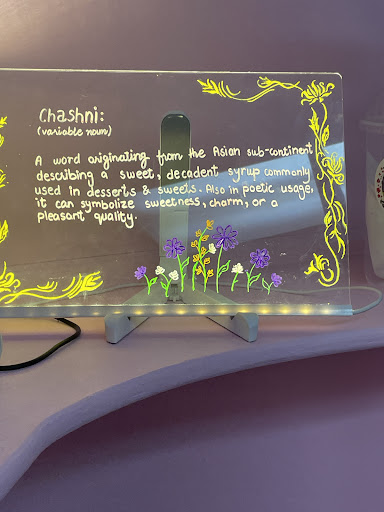 Chashni:
(variable noun)
A word originating from the Asian sub-continent
describing a sweet, decadent syrup commonly
used in desserts & sweets. Also in poetic usage,
it can symbolize sweetness, charm, or a
pleasant quality.